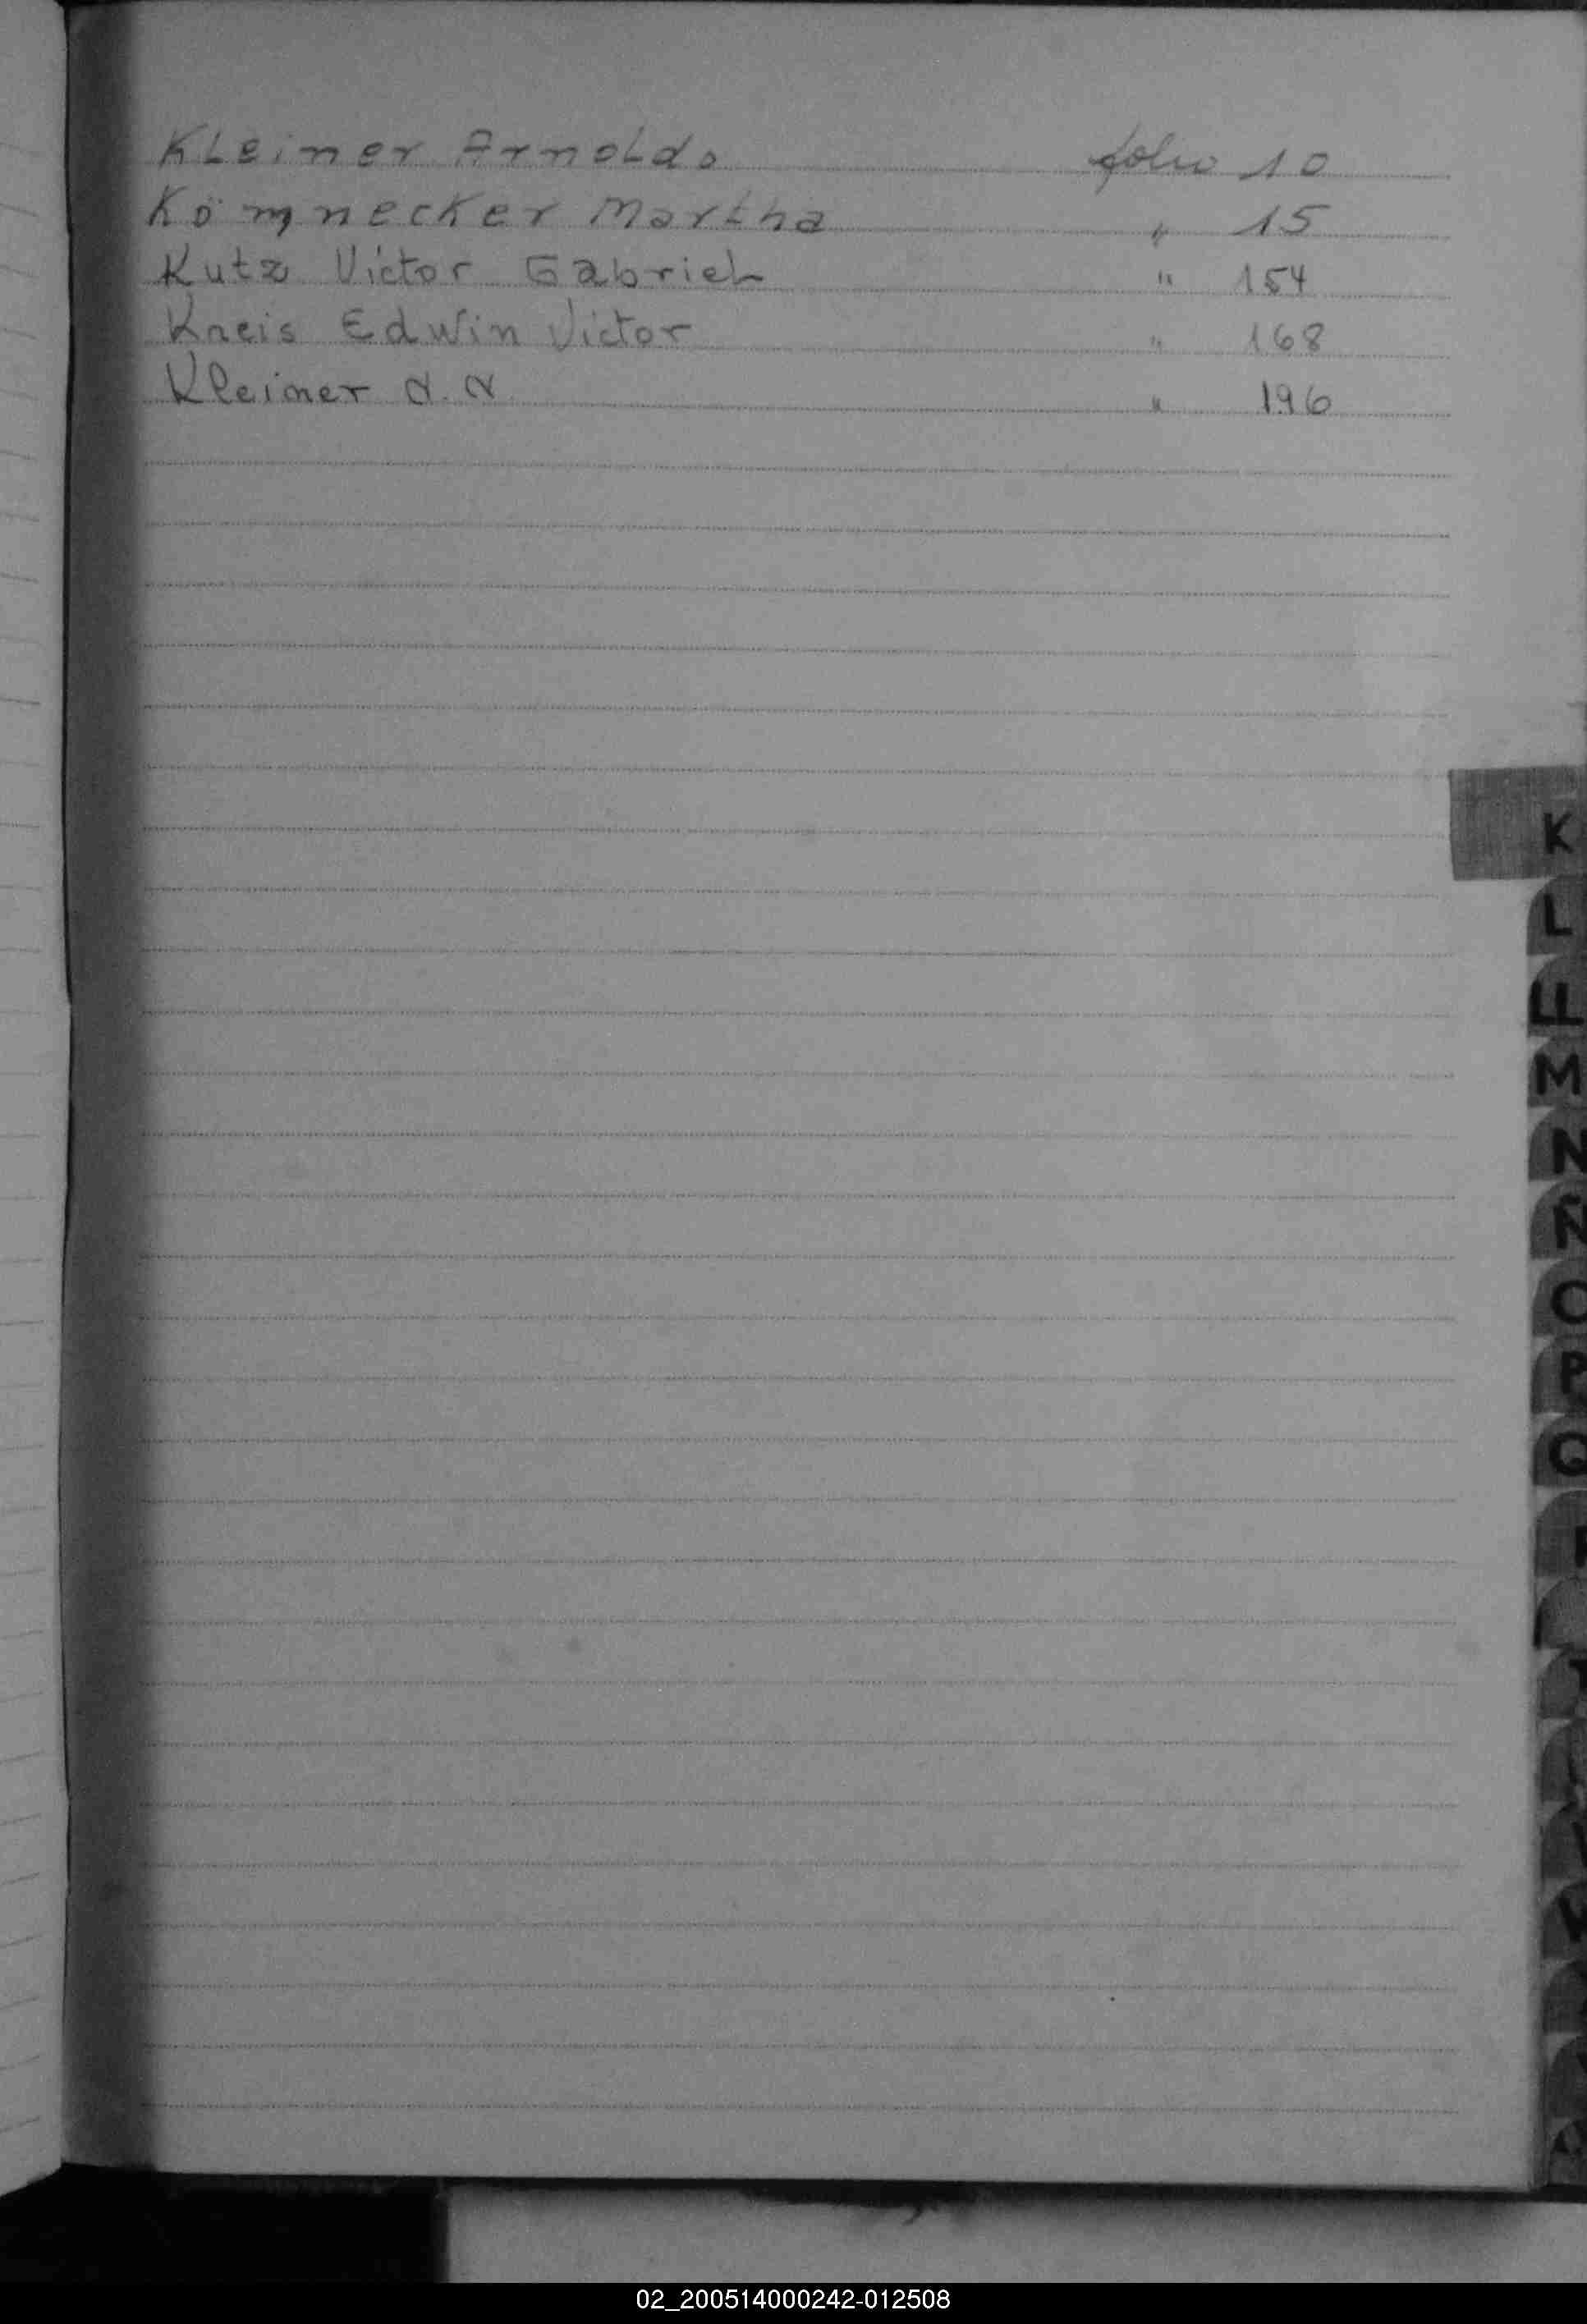 Kleiner Arnoldo folio 10
Kömnecker Martha " 15
Kutz Victor Gabriel " 154
Kneis Edwin Victor " 168
Kleiner N. N " 196
K
L
LL
M
N
Ñ
O
P
Q
02_200514000242-012508